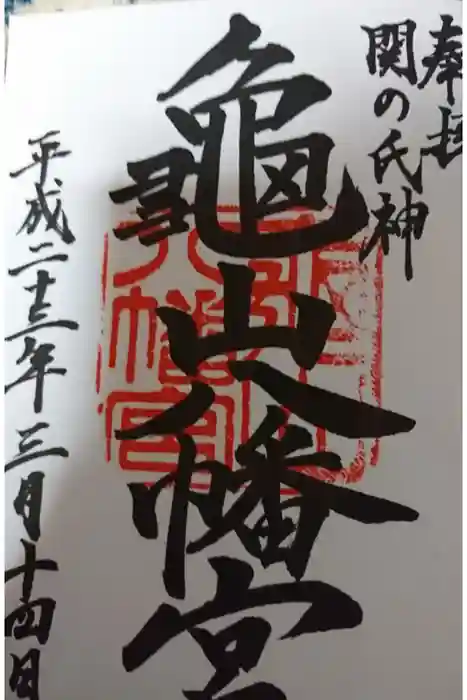 奉拝
関の氏神
亀山八幡宮
平成二十三年三月十四日